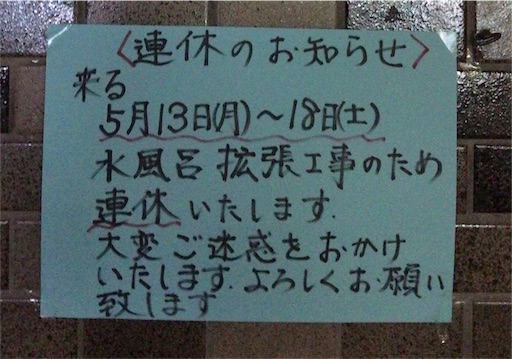 〈連休のお知らせ〉
来る
5月13日(月)～18日(土)
水風呂拡張工事のため
連休いたします.
大変ご迷惑をおかけ
いたします.よろしくお願い
致します